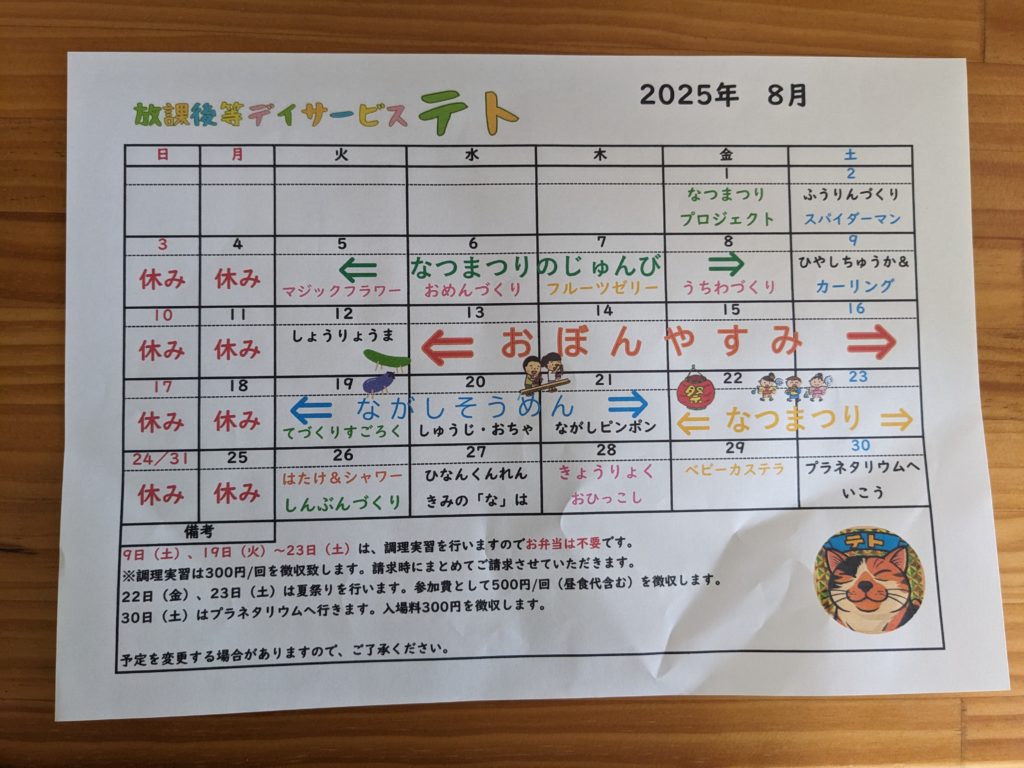 放課後等デイサービス テト
2025年 8月
日 月 火 水 木 金 土
1 2
なつまつり ふうりんづくり
プロジェクト スパイダーマン
3 4 5 6 7 8 9
休み 休み ⇐ なつまつりのじゅんび ⇒ ひやしちゅうか&
マジックフラワー おめんづくり フルーツゼリー うちわづくり カーリング
10 11 12 13 14 15 16
休み 休み しょうりょうま ⇐ おぼんやすみ ⇒
17 18 19 20 21 22 23
祭
休み 休み ⇐ ながしそうめん ⇒ ⇐ なつまつり ⇒
てづくりすごろく しゅうじ・おちゃ ながしピンポン
24/31 25 26 27 28 29 30
休み 休み はたけ&シャワー ひなんくんれん きょうりょく ベビーカステラ プラネタリウムへ
しんぶんづくり きみの「な」は おひっこし いこう
備考
9日(土)、19日(火)~23日(土)は、調理実習を行いますのでお弁当は不要です。
※調理実習は300円/回を徴収致します。請求時にまとめてご請求させていただきます。
22日(金)、23日(土)は夏祭りを行います。参加費として500円/回(昼食代含む)を徴収します。
30日(土)はプラネタリウムへ行きます。入場料300円を徴収します。
予定を変更する場合がありますので、ご了承ください。
テト